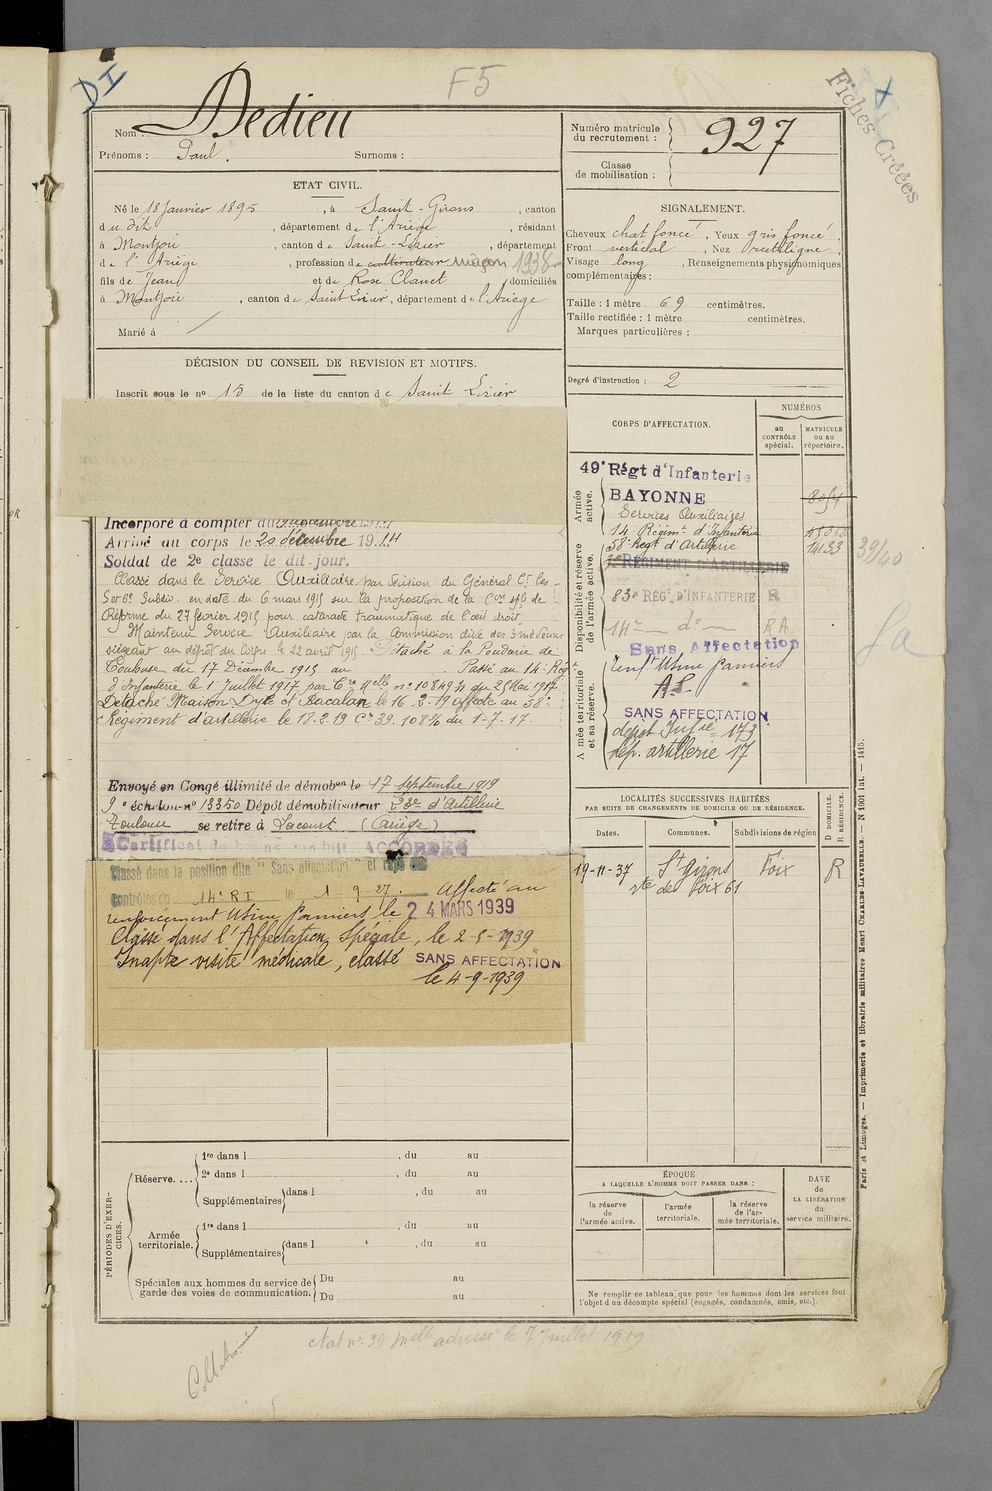 DI
F5
Fiches Créées
Nom : Dedieu
Prénoms : Paul. Surnoms :
Numéro matricule du recrutement : 927
Classe de mobilisation :
ETAT CIVIL.
Né le 18 Janvier 1895, à Saint-Girons, canton
du dit, département de l'Ariège, résidant
à Montjoie, canton de Saint-Lizier, département
de l'Ariège, profession de cultivateur maçon 1938
fils de Jean et de Rose Clanet domiciliés
à Montjoie, canton de Saint Lizier, département de l'Ariège
Marié à
SIGNALEMENT.
Cheveux chat foncé, Yeux gris foncé,
Front vertical, Nez rectiligne,
Visage long, Renseignements physionomiques
complémentaires :
Taille : 1 mètre 69 centimètres.
Taille rectifiée : 1 mètre centimètres.
Marques particulières :
Degré d'instruction : 2
DÉCISION DU CONSEIL DE REVISION ET MOTIFS.
Inscrit sous le no 15 de la liste du canton de Saint Lizier
Incorporé à compter du
Arrivé au corps le 20 décembre 1914
Soldat de 2e classe le dit jour.
Classé dans le Service Auxiliaire par décision du Général Ct les
5e et 6e Subdiv. en date du 6 mars 1915 sur la proposition de la Con sple de
Réforme du 27 février 1915 pour cataracte traumatique de l'œil droit
Maintenu Service Auxiliaire par la Commission dite des 3 médecins
siégeant au dépôt du Corps le 22 avril 1915. Détaché à la Poudrerie de
Toulouse du 17 Décembre 1915 au Passé au 14e Rég
d'Infanterie le 1er Juillet 1917 par Cre Mlle no 10849 du 25 Mai 1917
Détaché Maison Dyle et Bacalan le 16-2-19 affecté au 58e
Régiment d'artillerie le 18-2-19 Cre 39.108 du 1-7-17.
Envoyé en Congé illimité de démobon le 17 septembre 1919
9e échelon no 13350 Dépôt démobilisateur 23e d'Artillerie
Toulouse se retire à Lacourt (Ariège)
Certificat de bonne conduite ACCORDÉ
Classé dans la position dite "Sans affectation" et rayé des
contrôles du 14e RI le 1-9-27. Affecté au
renforcement Usine Pamiers le 24 MARS 1939
Classé dans l'Affectation Spéciale, le 2-5-1939
Inapte visite médicale, classé SANS AFFECTATION
le 4-9-1939
CORPS D'AFFECTATION.
NUMÉROS
au CONTRÔLE spécial.
MATRICULE ou au répertoire.
Armée active.
49e Régt d'Infanterie
BAYONNE
Services Auxiliaires
Disponibilité et réserve de l'armée active.
14e Régimt d'Infanterie
58e Régt d'Artillerie
RÉGIMENT D'ARTILLERIE
83e RÉGt D'INFANTERIE R
14e — do — RA
39/40
Sa
Armée territoriale et sa réserve.
Sans Affectation
Renft Usine Pamiers
AS
SANS AFFECTATION
dépôt Infie 173
dép. artillerie 17
LOCALITÉS SUCCESSIVES HABITÉES
PAR SUITE DE CHANGEMENTS DE DOMICILE OU DE RÉSIDENCE.
Dates. Communes. Subdivisions de région
D DOMICILE.
R RÉSIDENCE.
19-11-37 St Girons Foix R
rte de Foix 61
PÉRIODES D'EXERCICES.
Réserve....
1re dans l , du au
2e dans l , du au
Supplémentaires dans l , du au
Armée territoriale.
1re dans l , du au
Supplémentaires dans l , du au
Spéciales aux hommes du service de garde des voies de communication.
Du au
Du au
ÉPOQUE
A LAQUELLE L'HOMME DOIT PASSER DANS :
la réserve de l'armée active.
l'armée territoriale.
la réserve de l'armée territoriale.
DATE de LA LIBÉRATION du service militaire.
Ne remplir ce tableau que pour les hommes dont les services font
l'objet d'un décompte spécial (engagés, condamnés, omis, etc.).
Paris et Limoges. — Imprimerie et librairie militaires Henri CHARLES-LAVAUZELLE. — N 1001 int. — 1415.
adressé le 7 Juillet 1919